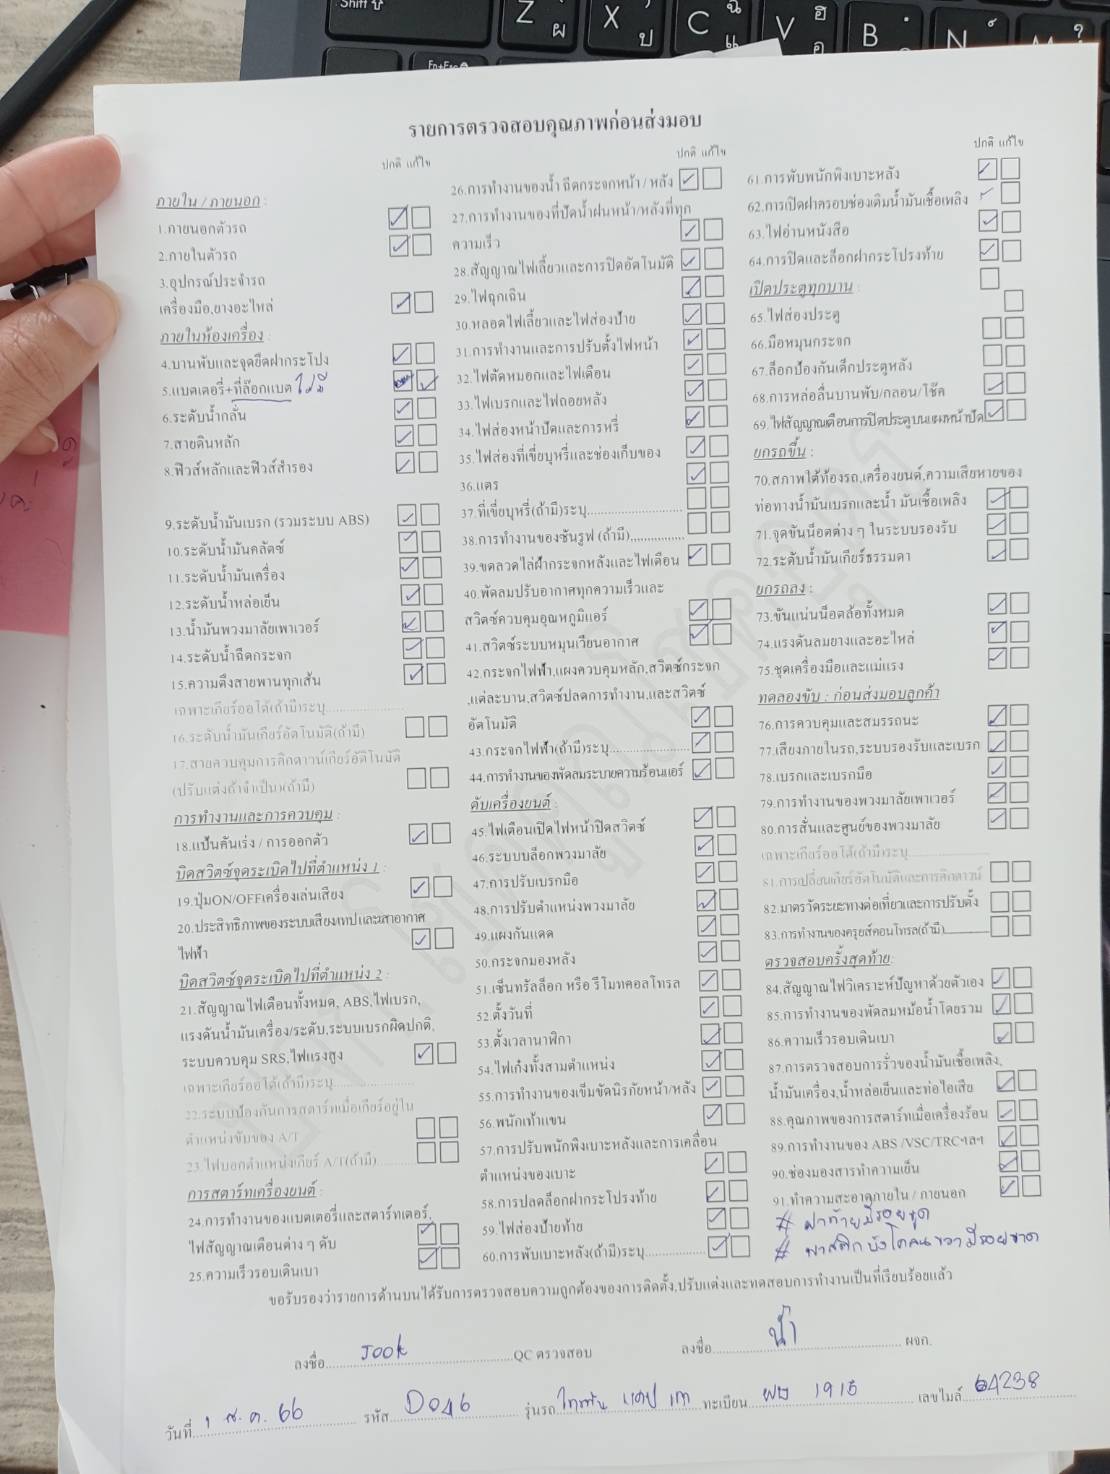 Shift
Z
ผ
X
ป
C
ฉ
แ
V
ฮ
อ
B
N
รายการตรวจสอบคุณภาพก่อนส่งมอบ
ปกติ แก้ไข
ภายใน / ภายนอก :
1.ภายนอกตัวรถ
2.ภายในตัวรถ
3.อุปกรณ์ประจำรถ
เครื่องมือ,ยางอะไหล่
ภายในห้องเครื่อง :
4.บานพับและจุดยึดฝากระโปรง
5.แบตเตอรี่+ที่ล๊อกแบต ไม่มี
6.ระดับน้ำกลั่น
7.สายดินหลัก
8.ฟิวส์หลักและฟิวส์สำรอง
9.ระดับน้ำมันเบรก (รวมระบบ ABS)
10.ระดับน้ำมันคลัตช์
11.ระดับน้ำมันเครื่อง
12.ระดับน้ำหล่อเย็น
13.น้ำมันพวงมาลัยเพาเวอร์
14.ระดับน้ำฉีดกระจก
15.ความตึงสายพานทุกเส้น
เฉพาะเกียร์ออโต้(ถ้ามี)ระบุ
16.ระดับน้ำมันเกียร์อัตโนมัติ(ถ้ามี)
17.สายควบคุมการคิกดาวน์เกียร์อัติโนมัติ
(ปรับแต่งถ้าจำเป็น)(ถ้ามี)
การทำงานและการควบคุม :
18.แป้นคันเร่ง / การออกตัว
บิดสวิตซ์จุดระเบิดไปที่ตำแหน่ง 1 :
19.ปุ่มON/OFFเครื่องเล่นเสียง
20.ประสิทธิภาพของระบบเสียงเทปและเสาอากาศ
ไฟฟ้า
บิดสวิตซ์จุดระเบิดไปที่ตำแหน่ง 2 :
21.สัญญาณไฟเตือนทั้งหมด, ABS,ไฟเบรก,
แรงดันน้ำมันเครื่อง/ระดับ,ระบบเบรกผิดปกติ,
ระบบควบคุม SRS,ไฟแรงสูง
เฉพาะเกียร์ออโต้(ถ้ามี)ระบุ
22.ระบบป้องกันการสตาร์ทเมื่อเกียร์อยู่ใน
ตำแหน่งขับของ A/T
23.ไฟบอกตำแหน่งเกียร์ A/T(ถ้ามี)
การสตาร์ทเครื่องยนต์ :
24.การทำงานของแบตเตอรี่และสตาร์ทเตอร์,
ไฟสัญญาณเตือนต่าง ๆ ดับ
25.ความเร็วรอบเดินเบา
ปกติ แก้ไข
26.การทำงานของน้ำ ฉีดกระจกหน้า / หลัง
27.การทำงานของที่ปัดน้ำฝนหน้า/หลังที่ทุก
ความเร็ว
28.สัญญาณไฟเลี้ยวและการปิดอัตโนมัติ
29.ไฟฉุกเฉิน
30.หลอดไฟเลี้ยวและไฟส่องป้าย
31.การทำงานและการปรับตั้งไฟหน้า
32.ไฟตัดหมอกและไฟเตือน
33.ไฟเบรกและไฟถอยหลัง
34.ไฟส่องหน้าปัดและการหรี่
35.ไฟส่องที่เขี่ยบุหรี่และช่องเก็บของ
36.แตร
37.ที่เขี่ยบุหรี่(ถ้ามี)ระบุ
38.การทำงานของซันรูฟ (ถ้ามี)
39.ขดลวดไล่ฝ้ากระจกหลังและไฟเตือน
40.พัดลมปรับอากาศทุกความเร็วและ
สวิตช์ควบคุมอุณหภูมิแอร์
41.สวิตช์ระบบหมุนเวียนอากาศ
42.กระจกไฟฟ้า,แผงควบคุมหลัก,สวิตช์กระจก
,แต่ละบาน,สวิตช์ปลดการทำงาน,และสวิตช์
อัตโนมัติ
43.กระจกไฟฟ้า(ถ้ามี)ระบุ
44.การทำงานของพัดลมระบายความร้อนแอร์
ดับเครื่องยนต์ :
45.ไฟเตือนเปิดไฟหน้าปิดสวิตช์
46.ระบบล็อกพวงมาลัย
47.การปรับเบรกมือ
48.การปรับตำแหน่งพวงมาลัย
49.แผงกันแดด
50.กระจกมองหลัง
51.เซ็นทรัลล็อก หรือ รีโมทคอลโทรล
52 ตั้งวันที่
53.ตั้งเวลานาฬิกา
54.ไฟเก๋งทั้งสามตำแหน่ง
55.การทำงานของเข็มขัดนิรภัยหน้า/หลัง
56.พนักเท้าแขน
57.การปรับพนักพิงเบาะหลังและการเคลื่อน
ตำแหน่งของเบาะ
58.การปลดล็อกฝากระโปรงท้าย
59.ไฟส่องป้ายท้าย
60.การพับเบาะหลัง(ถ้ามี)ระบุ
ปกติ แก้ไข
61.การพับพนักพิงเบาะหลัง
62.การเปิดฝาครอบช่องเติมน้ำมันเชื้อเพลิง
63.ไฟอ่านหนังสือ
64.การปิดและล็อกฝากระโปรงท้าย
เปิดประตูทุกบาน :
65.ไฟส่องประตู
66.มือหมุนกระจก
67.ล็อกป้องกันเด็กประตูหลัง
68.การหล่อลื่นบานพับ/กลอน/โช๊ค
69.ไฟสัญญาณเตือนการปิดประตูบนแผงหน้าปัด
ยกรถขึ้น :
70.สภาพใต้ท้องรถ,เครื่องยนต์,ความเสียหายของ
ท่อทางน้ำมันเบรกและน้ำ มันเชื้อเพลิง
71.จุดขันน็อตต่าง ๆ ในระบบรองรับ
72.ระดับน้ำมันเกียร์ธรรมดา
ยกรถลง :
73.ขันแน่นน็อตล้อทั้งหมด
74.แรงดันลมยางและอะไหล่
75.ชุดเครื่องมือและแม่แรง
ทดลองขับ : ก่อนส่งมอบลูกค้า
76.การควบคุมและสมรรถนะ
77.เสียงภายในรถ,ระบบรองรับและเบรก
78.เบรกและเบรกมือ
79.การทำงานของพวงมาลัยเพาเวอร์
80.การสั่นและศูนย์ของพวงมาลัย
เฉพาะเกียร์ออโต้(ถ้ามี)ระบุ
81.การเปลี่ยนเกียร์อัตโนมัติและการคิกดาวน์
82.มาตรวัดระยะทางต่อเที่ยวและการปรับตั้ง
83.การทำงานของครุยส์คอนโทรล(ถ้ามี)
ตรวจสอบครั้งสุดท้าย:
84.สัญญาณไฟวิเคราะห์ปัญหาด้วยตัวเอง
85.การทำงานของพัดลมหม้อน้ำโดยรวม
86.ความเร็วรอบเดินเบา
87.การตรวจสอบการรั่วของน้ำมันเชื้อเพลิง,
น้ำมันเครื่อง,น้ำหล่อเย็นและท่อไอเสีย
88.คุณภาพของการสตาร์ทเมื่อเครื่องร้อน
89.การทำงานของ ABS /VSC/TRCฯลฯ
90.ช่องมองสารทำความเย็น
91.ทำความสะอาดภายใน / ภายนอก
# ฝาท้ายมีรอยขูด
# พาสติก บังโคลน ขวา มีรอยขาด
ขอรับรองว่ารายการด้านบนได้รับการตรวจสอบความถูกต้องของการติดตั้ง,ปรับแต่งและทดสอบการทำงานเป็นที่เรียบร้อยแล้ว
ลงชื่อ Jook QC ตรวจสอบ ลงชื่อ น้ำ ผจก.
วันที่ 1 ส.ค. 66 รหัส D046 รุ่นรถ ไททัน แคป เทา ทะเบียน ผษ 1915 เลขไมล์ 64238